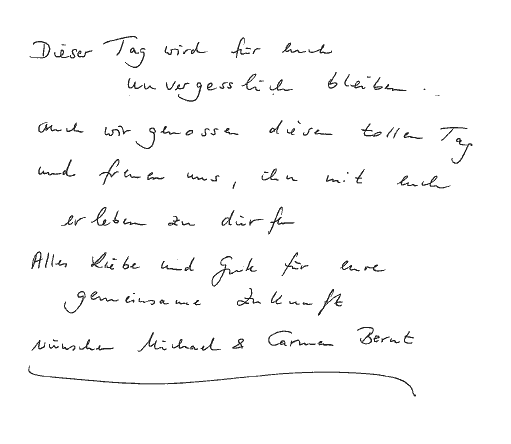 Dieser Tag wird für euch
unvergesslich bleiben ..
auch wir genossen diesen tollen Tag
und freuen uns, ihn mit euch
erleben zu dürfen
Alles Liebe und Gute für eure
gemeinsame Zukunft
wünschen Michael & Carmen Bernt